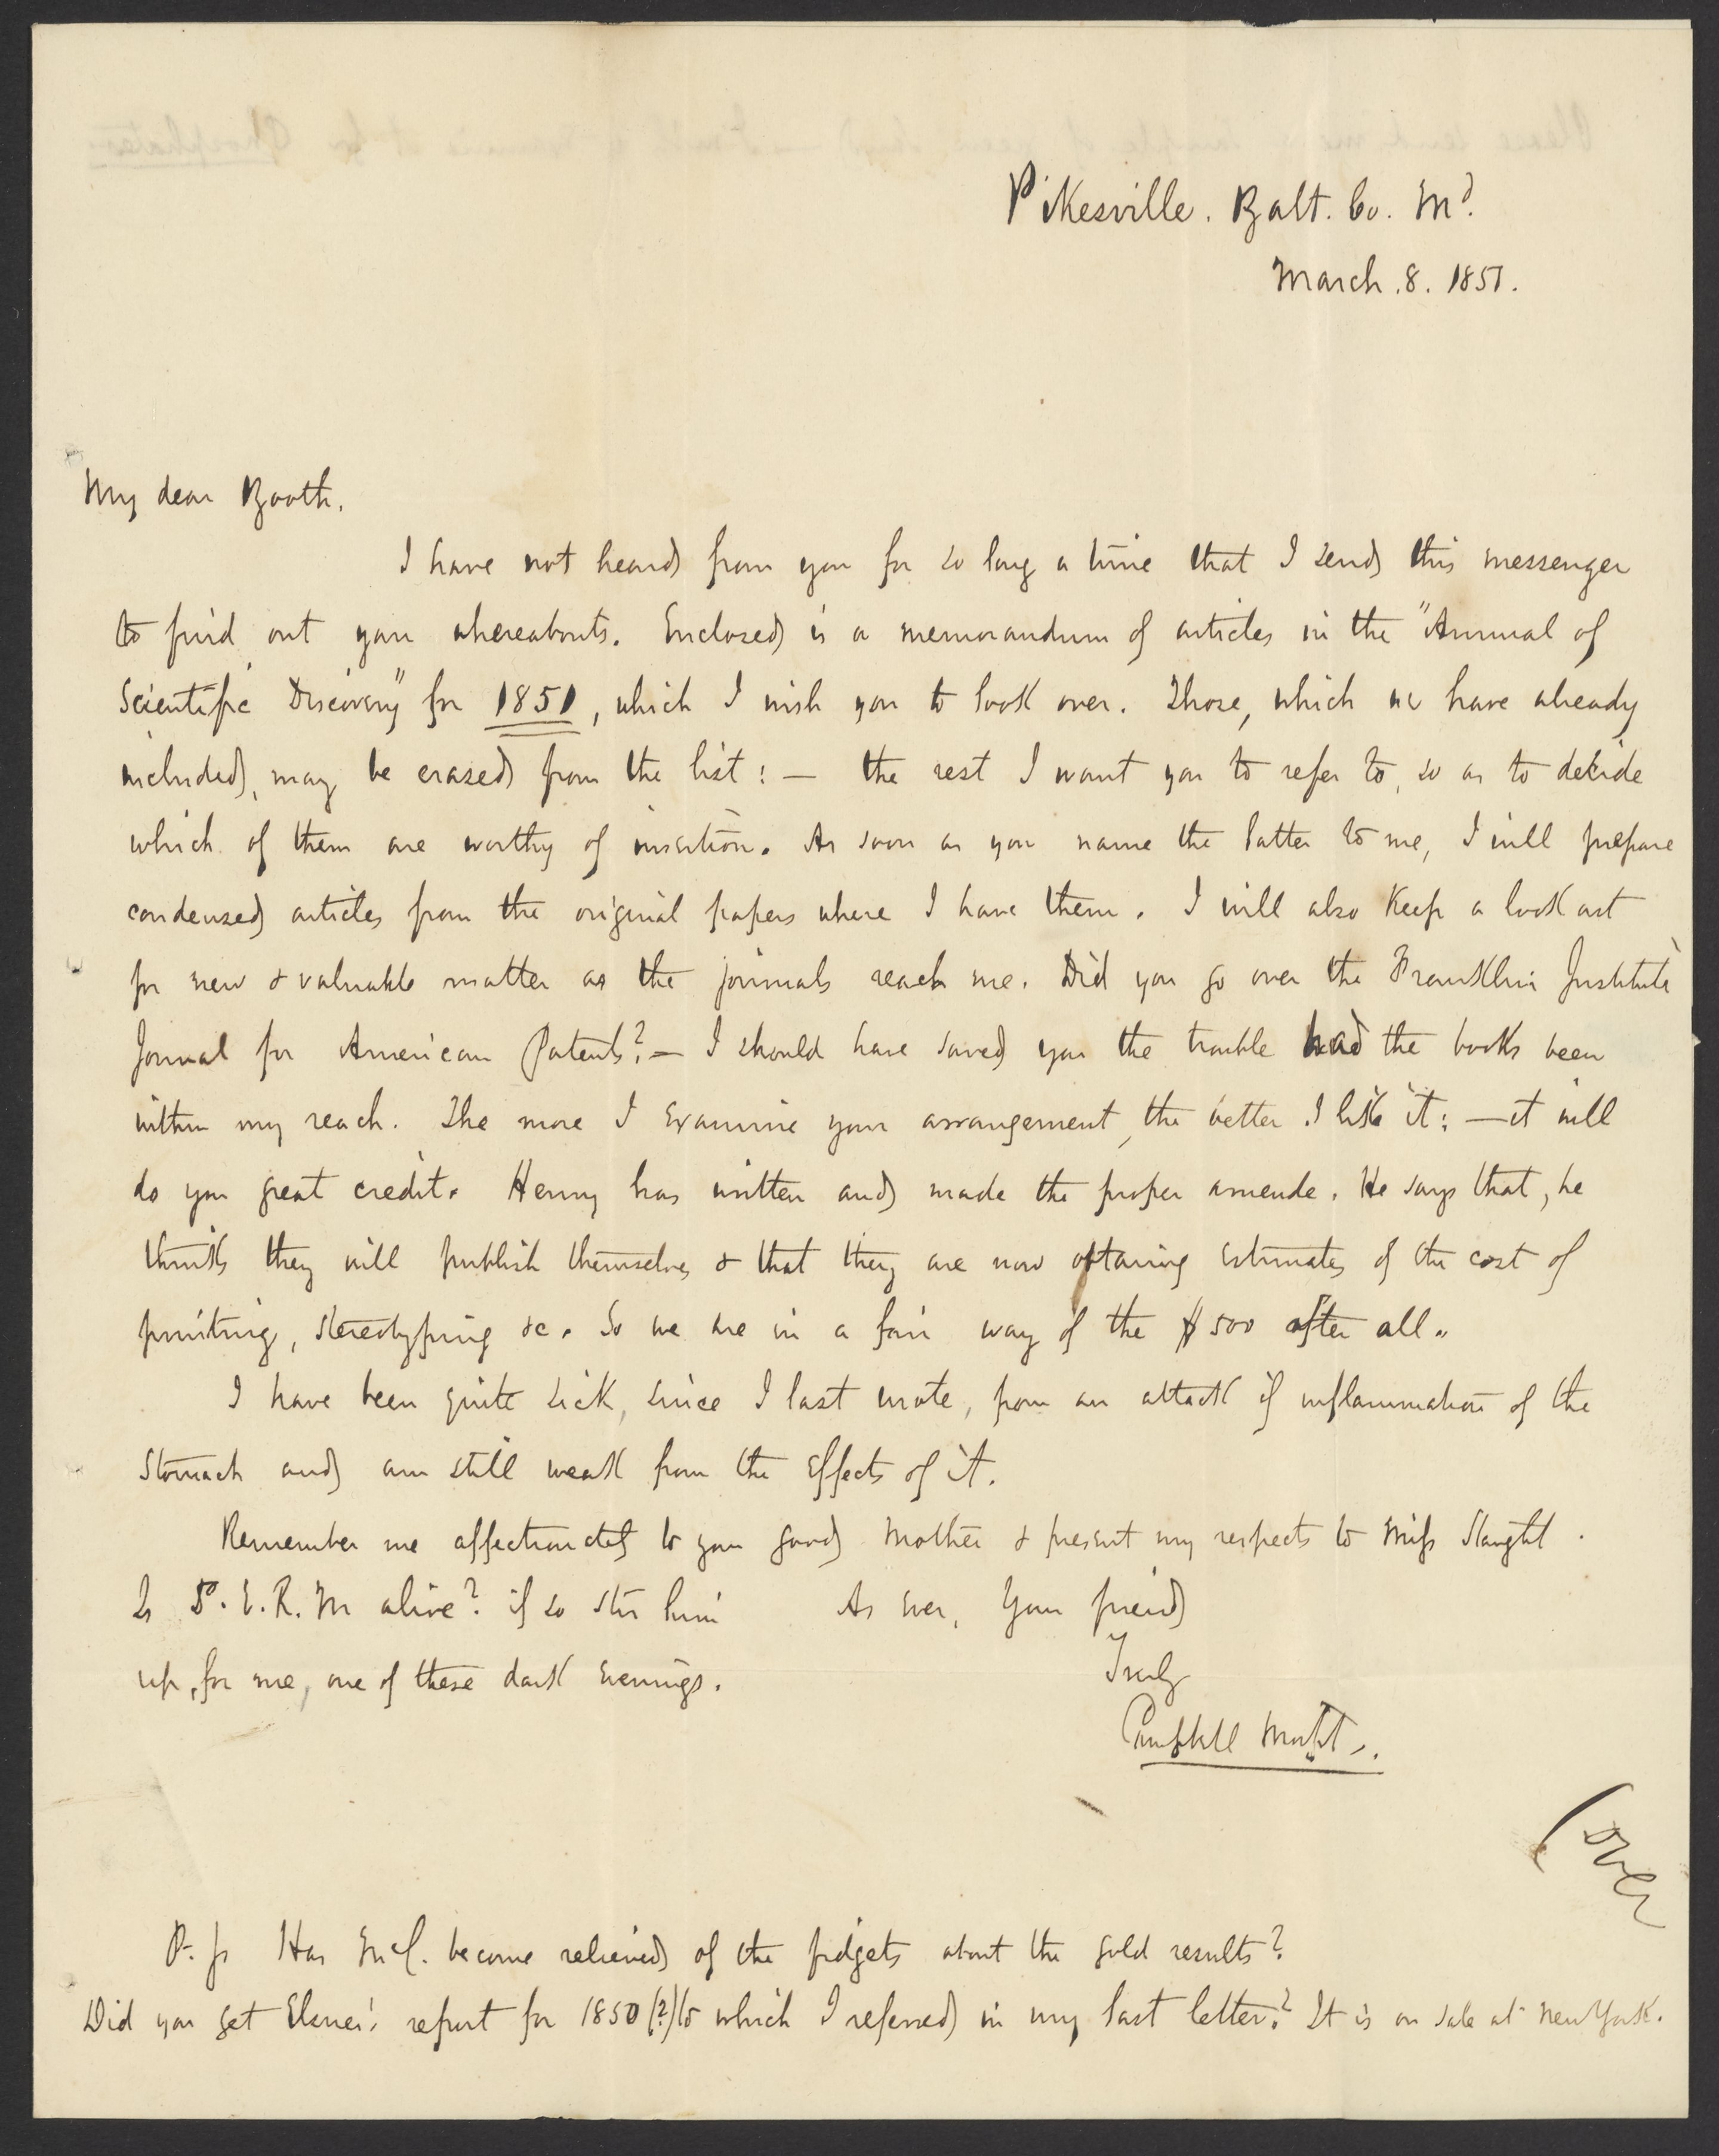 Pikesville. Balt. Co. Md.
March. 8. 1851.
My dear Booth.
I have not heard from you for so long a time that I send this messenger
to find out your whereabouts. Enclosed is a memorandum of articles in the "Annual of
Scientific Discovery" for 1851, which I wish you to look over. Those, which we have already
included, may be erased from the list: — the rest I want you to refer to, so as to decide
which of them are worthy of insertion. As soon as you name the latter to me, I will prepare
condensed articles from the original papers where I have them. I will also Keep a look out
for new & valuable matter as the journals reach me. Did you go over the Franklin Institute
Journal for American Patents? — I should have saved you the trouble had the books been
within my reach. The more I examine your arrangement, the better I like it: — it will
do you great credit. Henry has written and made the proper amende. He says that, he
thinks they will publish themselves & that they are now obtaining estimates of the cost of
printing, stereotyping &c. So we are in a fair way of the $500 after all.
I have been quite sick, since I last wrote, from an attack of inflammation of the
stomach and am still weak from the effects of it.
Remember me affectionately to your good Mother & present my respects to Miss
Is E. R. M alive? if so stir him As ever, Your friend
up, for me, one of these dark evenings. Truly
Campbell Morfit.
(over
P. S Has become relieved of the fidgets about the gold results?
Did you get report for 1850 (?) to which I referred in my last letter? It is on sale at New York.